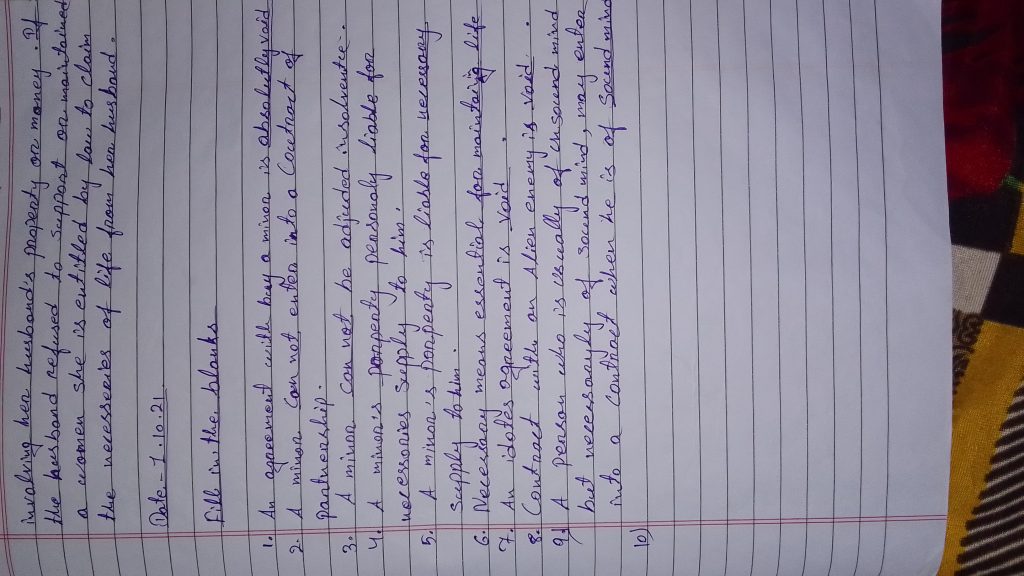 involving her husband's property or money. If
the husband refused to support or maintained
a women she is entitled by law to claim
the necesseries of life from her husband.
Date:- 7.10.21
Fill in the blanks
1. An agreement with by a minor is absolutly void
2. A minor can not enter into a Contract of
partnership.
3. A minor can not be adjuded insolvente.
4. A minor is property personaly liable for
necessaries supply to him.
5. A minor is property is liable for necessary
supply to him.
6. Necessary means essential for maintaing life
7. An idotes agreement is void.
8. Contract with an Alien enemy is void.
9) A person who is usually of unsound mind
but necessarily of sound mind, may enter
into a contract when he is of sound mind
10)